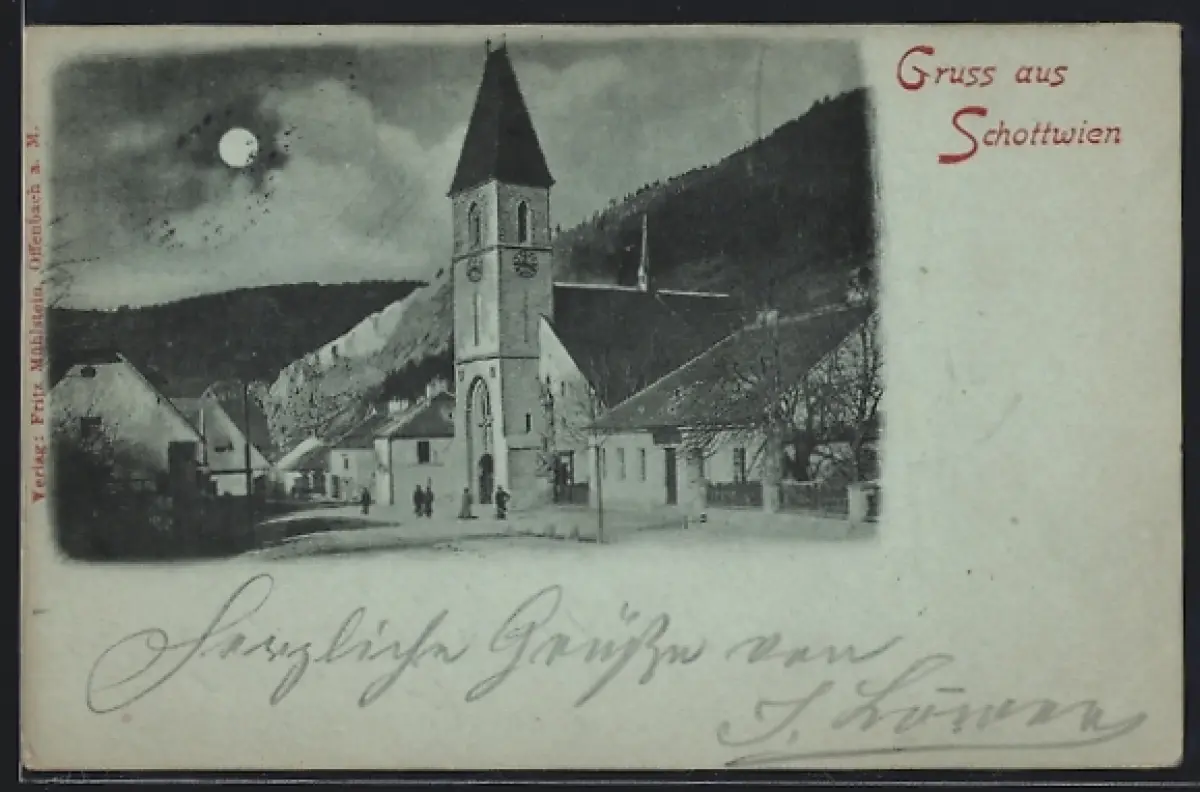 Gruss aus
Schottwien
Verlag: Fritz Mühlstein, Offenbach a. M.
Herzliche Grüße von
J.